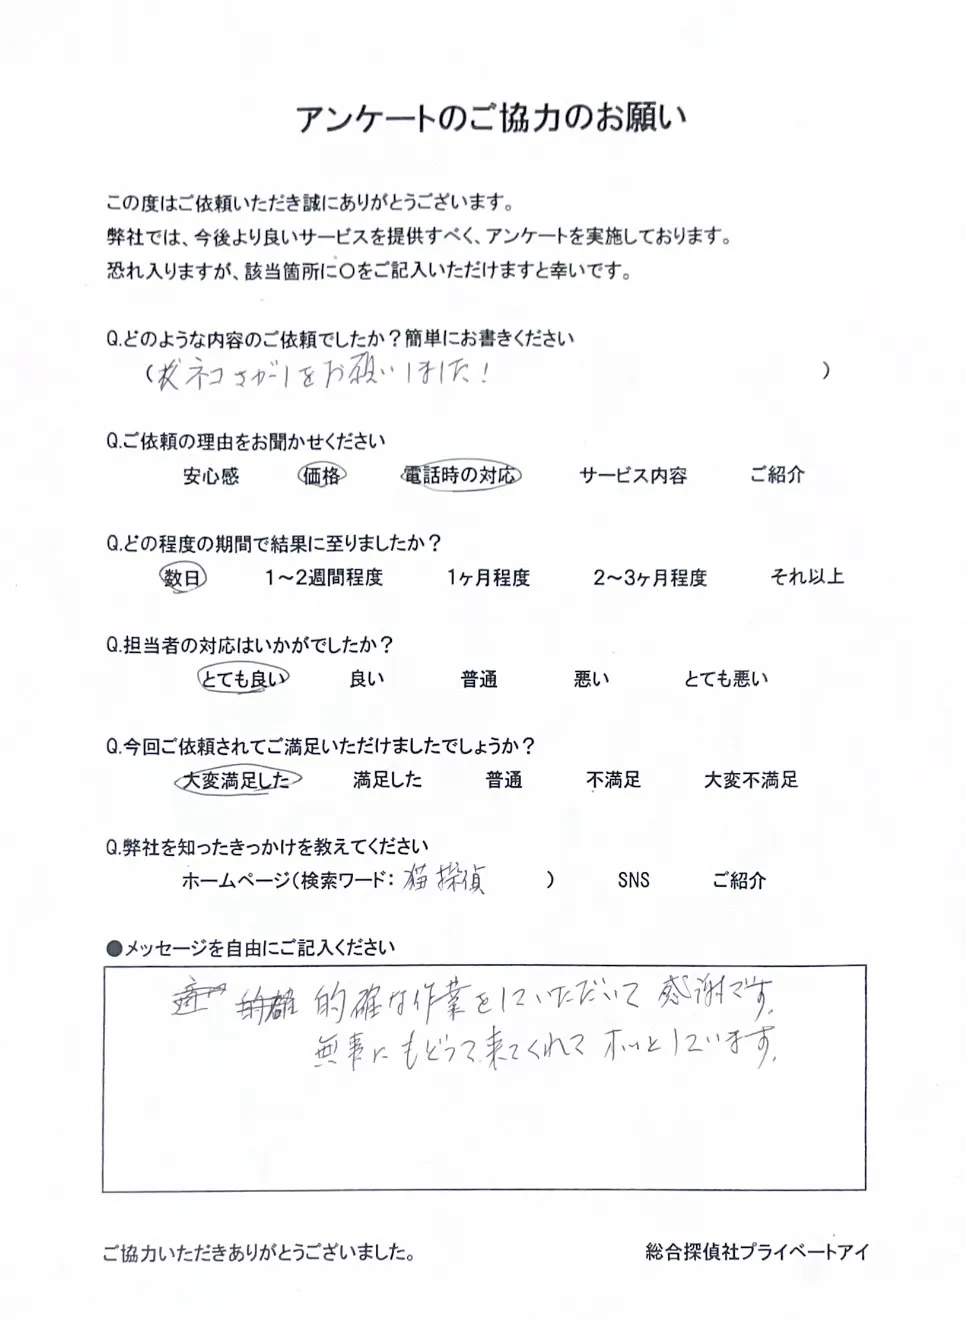 アンケートのご協力のお願い
この度はご依頼いただき誠にありがとうございます。
弊社では、今後より良いサービスを提供すべく、アンケートを実施しております。
恐れ入りますが、該当箇所に〇をご記入いただけますと幸いです。
Q.どのような内容のご依頼でしたか？簡単にお書きください
(ネコさがしをお願いしました! )
Q.ご依頼の理由をお聞かせください
安心感 価格 電話時の対応 サービス内容 ご紹介
Q.どの程度の期間で結果に至りましたか？
数日 1～2週間程度 1ヶ月程度 2～3ヶ月程度 それ以上
Q.担当者の対応はいかがでしたか？
とても良い 良い 普通 悪い とても悪い
Q.今回ご依頼されてご満足いただけましたでしょうか？
大変満足した 満足した 普通 不満足 大変不満足
Q.弊社を知ったきっかけを教えてください
ホームページ(検索ワード: 猫探偵 ) SNS ご紹介
●メッセージを自由にご記入ください
的確な作業をしていただいて感謝です。
無事にもどって来てくれてホッとしています。
ご協力いただきありがとうございました。
総合探偵社プライベートアイ